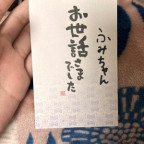 ふみちゃん
お世話さま
でした